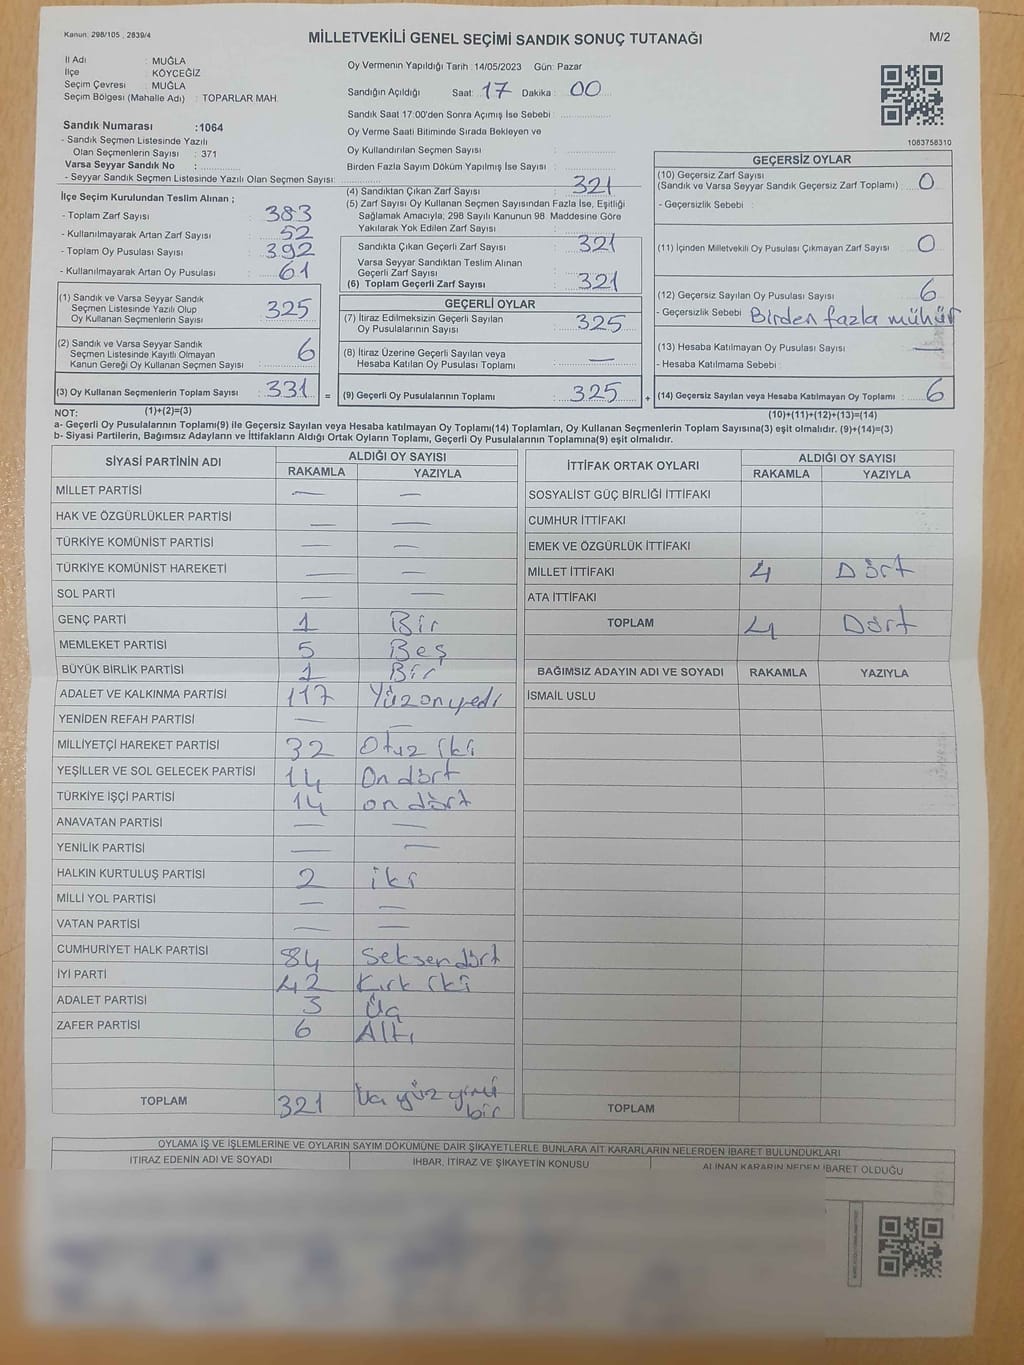 Kanun: 298/105 , 2839/4
MİLLETVEKİLİ GENEL SEÇİMİ SANDIK SONUÇ TUTANAĞI
M/2
İl Adı : MUĞLA
İlçe : KÖYCEĞİZ
Seçim Çevresi : MUĞLA
Seçim Bölgesi (Mahalle Adı) : TOPARLAR MAH.
Sandık Numarası :1064
- Sandık Seçmen Listesinde Yazılı
Olan Seçmenlerin Sayısı : 371
Varsa Seyyar Sandık No :
- Seyyar Sandık Seçmen Listesinde Yazılı Olan Seçmen Sayısı:
Oy Vermenin Yapıldığı Tarih :14/05/2023 Gün: Pazar
Sandığın Açıldığı Saat: 17 Dakika : 00
Sandık Saat 17:00'den Sonra Açımış İse Sebebi :
Oy Verme Saati Bitiminde Sırada Bekleyen ve
Oy Kullandırılan Seçmen Sayısı :
Birden Fazla Sayım Döküm Yapılmış İse Sayısı :
1083758310
İlçe Seçim Kurulundan Teslim Alınan ;
- Toplam Zarf Sayısı : 383
- Kullanılmayarak Artan Zarf Sayısı : 52
- Toplam Oy Pusulası Sayısı : 392
- Kullanılmayarak Artan Oy Pusulası : 61
(1) Sandık ve Varsa Seyyar Sandık
Seçmen Listesinde Yazılı Olup
Oy Kullanan Seçmenlerin Sayısı : 325
(2) Sandık ve Varsa Seyyar Sandık
Seçmen Listesinde Kayıtlı Olmayan
Kanun Gereği Oy Kullanan Seçmen Sayısı : 6
(3) Oy Kullanan Seçmenlerin Toplam Sayısı : 331 =
(1)+(2)=(3)
(4) Sandıktan Çıkan Zarf Sayısı : 321
(5) Zarf Sayısı Oy Kullanan Seçmen Sayısından Fazla İse, Eşitliği
Sağlamak Amacıyla; 298 Sayılı Kanunun 98. Maddesine Göre
Yakılarak Yok Edilen Zarf Sayısı :
Sandıkta Çıkan Geçerli Zarf Sayısı : 321
Varsa Seyyar Sandıktan Teslim Alınan
Geçerli Zarf Sayısı :
(6) Toplam Geçerli Zarf Sayısı : 321
GEÇERLİ OYLAR
(7) İtiraz Edilmeksizin Geçerli Sayılan
Oy Pusulalarının Sayısı : 325
(8) İtiraz Üzerine Geçerli Sayılan veya
Hesaba Katılan Oy Pusulası Toplamı : —
(9) Geçerli Oy Pusulalarının Toplamı : 325 +
GEÇERSİZ OYLAR
(10) Geçersiz Zarf Sayısı
(Sandık ve Varsa Seyyar Sandık Geçersiz Zarf Toplamı) : 0
- Geçersizlik Sebebi :
(11) İçinden Milletvekili Oy Pusulası Çıkmayan Zarf Sayısı : 0
(12) Geçersiz Sayılan Oy Pusulası Sayısı : 6
- Geçersizlik Sebebi : Birden fazla mühür
(13) Hesaba Katılmayan Oy Pusulası Sayısı : —
- Hesaba Katılmama Sebebi :
(14) Geçersiz Sayılan veya Hesaba Katılmayan Oy Toplamı : 6
(10)+(11)+(12)+(13)=(14)
NOT:
a- Geçerli Oy Pusulalarının Toplamı(9) ile Geçersiz Sayılan veya Hesaba katılmayan Oy Toplamı(14) Toplamları, Oy Kullanan Seçmenlerin Toplam Sayısına(3) eşit olmalıdır. (9)+(14)=(3)
b- Siyasi Partilerin, Bağımsız Adayların ve İttifakların Aldığı Ortak Oyların Toplamı, Geçerli Oy Pusulalarının Toplamına(9) eşit olmalıdır.
SİYASİ PARTİNİN ADI ALDIĞI OY SAYISI
RAKAMLA YAZIYLA
MİLLET PARTİSİ — —
HAK VE ÖZGÜRLÜKLER PARTİSİ — —
TÜRKİYE KOMÜNİST PARTİSİ — —
TÜRKİYE KOMÜNİST HAREKETİ — —
SOL PARTİ — —
GENÇ PARTİ 1 Bir
MEMLEKET PARTİSİ 5 Beş
BÜYÜK BİRLİK PARTİSİ 1 Bir
ADALET VE KALKINMA PARTİSİ 117 Yüzonyedi
YENİDEN REFAH PARTİSİ — —
MİLLİYETÇİ HAREKET PARTİSİ 32 Otuz iki
YEŞİLLER VE SOL GELECEK PARTİSİ 14 On dört
TÜRKİYE İŞÇİ PARTİSİ 14 on dört
ANAVATAN PARTİSİ — —
YENİLİK PARTİSİ — —
HALKIN KURTULUŞ PARTİSİ 2 iki
MİLLİ YOL PARTİSİ — —
VATAN PARTİSİ — —
CUMHURİYET HALK PARTİSİ 84 Seksendört
İYİ PARTİ 42 Kırk iki
ADALET PARTİSİ 3 Üç
ZAFER PARTİSİ 6 Altı
TOPLAM 321 Üç yüz yirmi
bir
İTTİFAK ORTAK OYLARI ALDIĞI OY SAYISI
RAKAMLA YAZIYLA
SOSYALİST GÜÇ BİRLİĞİ İTTİFAKI
CUMHUR İTTİFAKI
EMEK VE ÖZGÜRLÜK İTTİFAKI
MİLLET İTTİFAKI 4 Dört
ATA İTTİFAKI
TOPLAM 4 Dört
BAĞIMSIZ ADAYIN ADI VE SOYADI RAKAMLA YAZIYLA
İSMAİL USLU
TOPLAM
OYLAMA İŞ VE İŞLEMLERİNE VE OYLARIN SAYIM DÖKÜMÜNE DAİR ŞİKAYETLERLE BUNLARA AİT KARARLARIN NELERDEN İBARET BULUNDUKLARI
İTİRAZ EDENİN ADI VE SOYADI İHBAR, İTİRAZ VE ŞİKAYETİN KONUSU ALINAN KARARIN NEDEN İBARET OLDUĞU